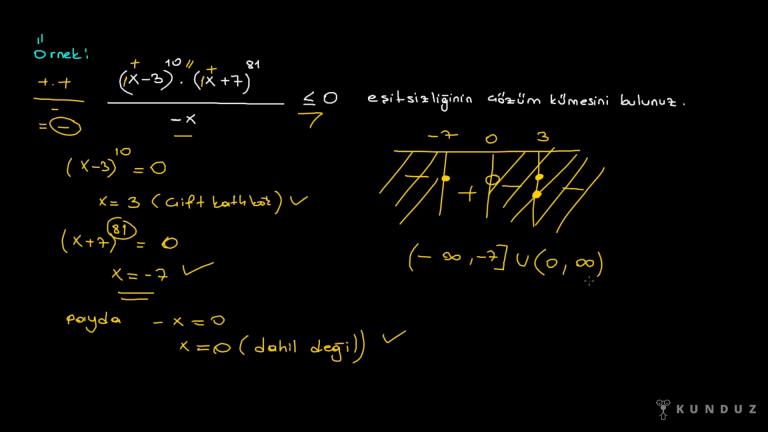 Örnek:
(x-3)^10 . (x+7)^81 / -x ≤ 0 eşitsizliğinin çözüm kümesini bulunuz.
+ . + / - = -
(x-3)^10 = 0
x = 3 (çift katlı kök) ✓
(x+7)^81 = 0
x = -7 ✓
payda -x = 0
x = 0 (dahil değil) ✓
-7 0 3
- + - -
(-∞, -7] ∪ (0, ∞)
KUNDUZ